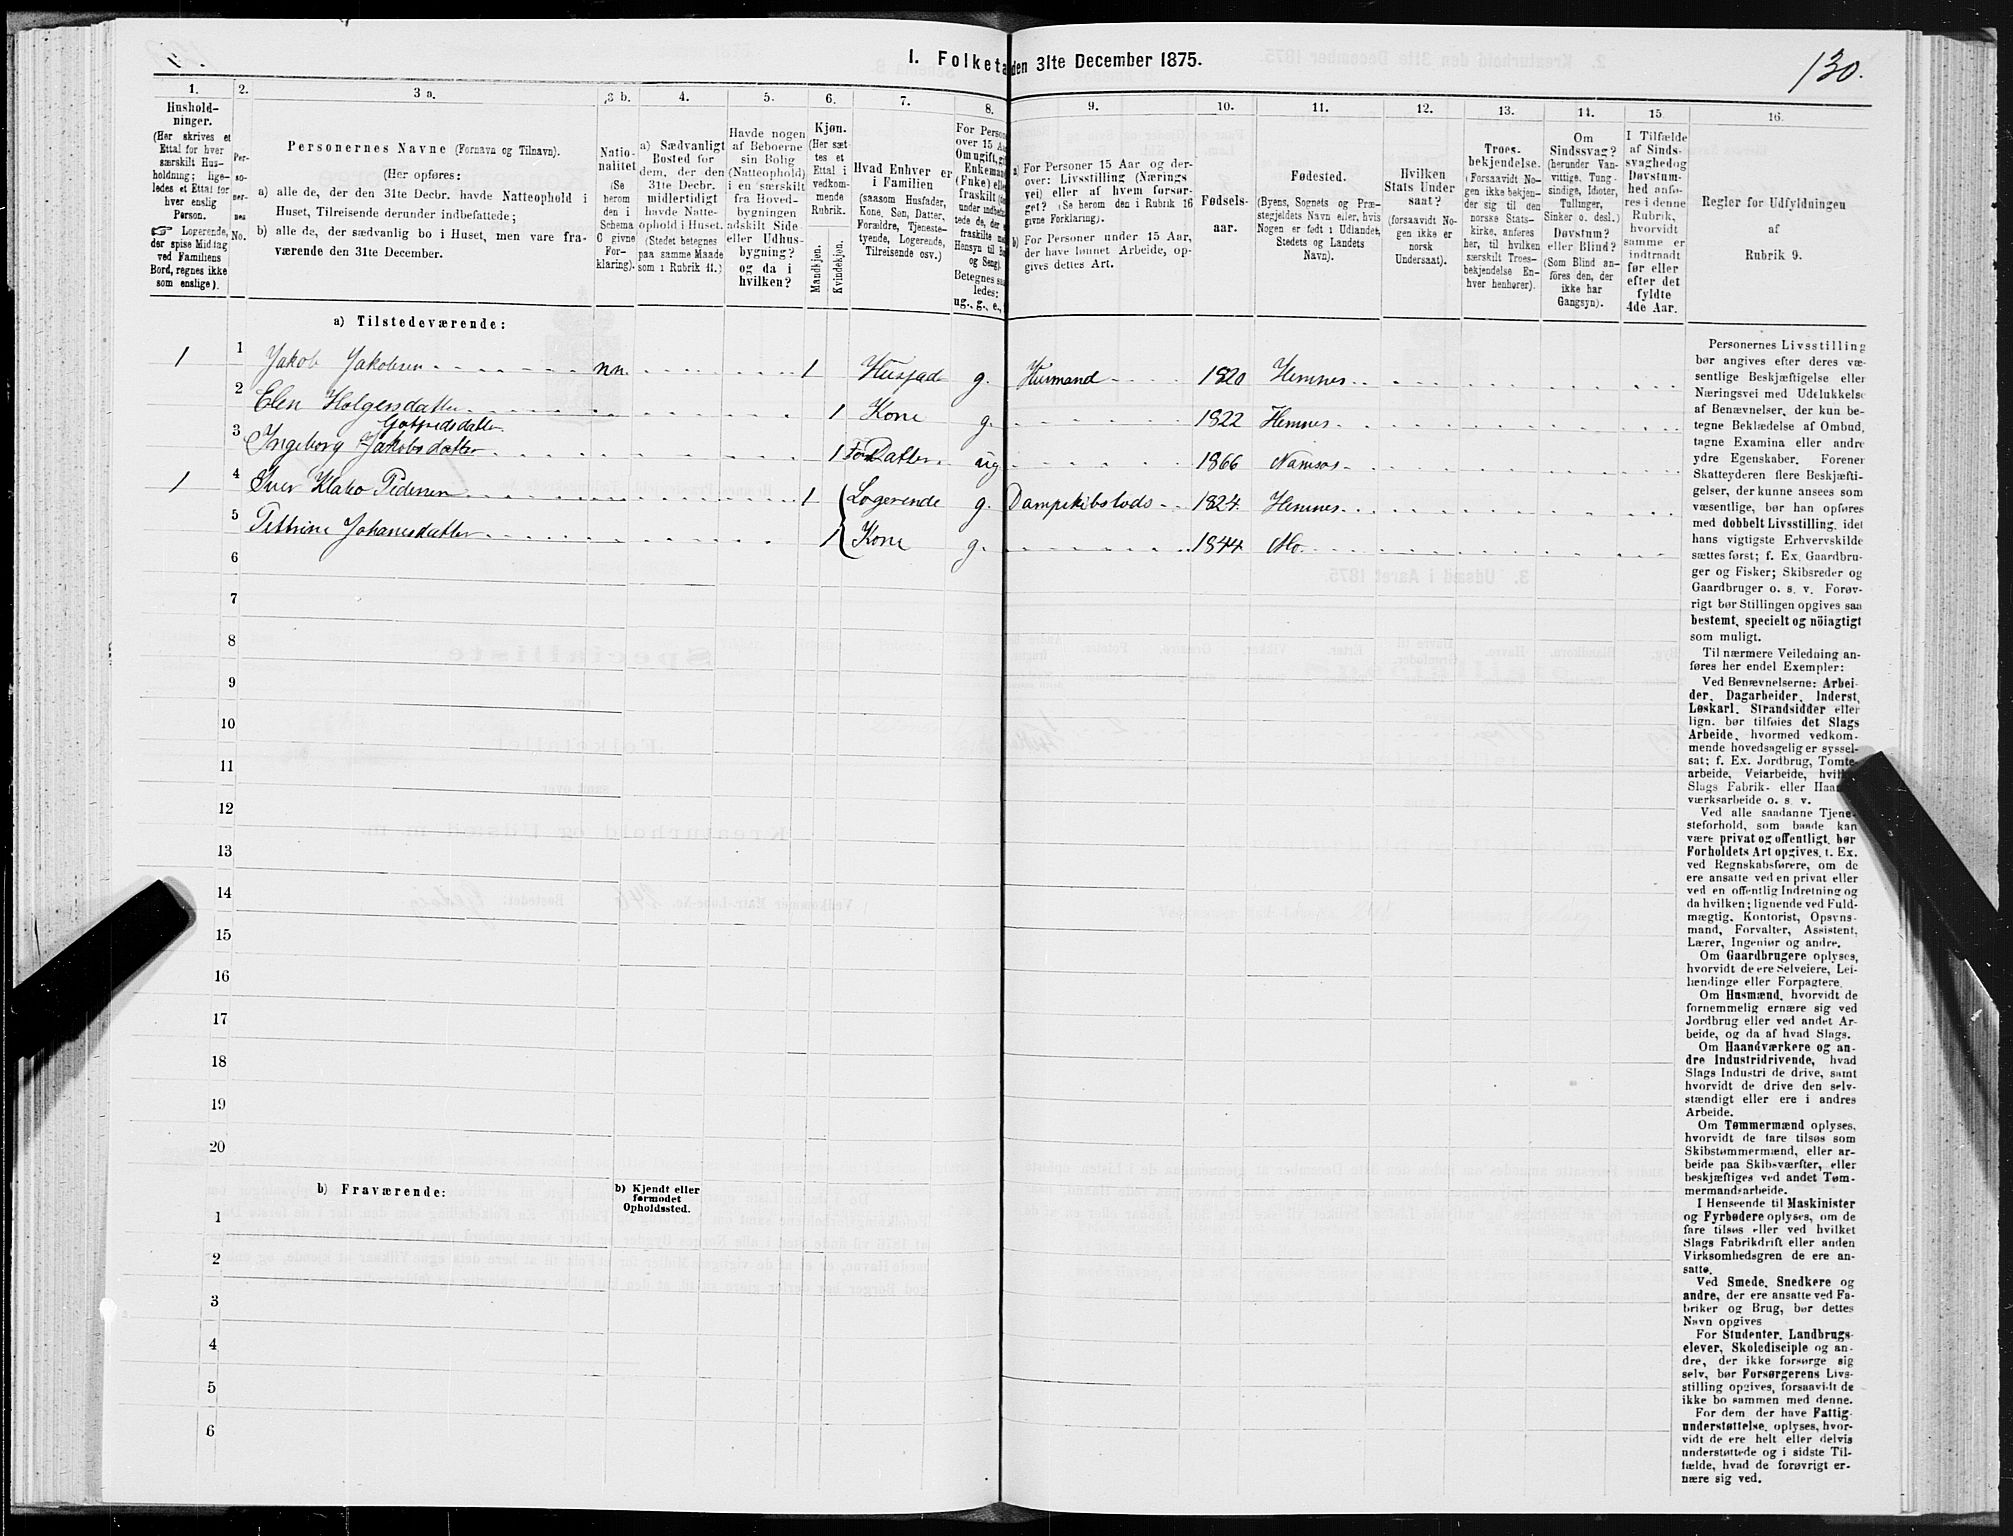 130.
I. Folketa
den 31te December 1875.
1.
Hushold-
ninger.
(Her skrives et
Ettal for hver
særskilt Hus-
holdning; lige-
ledes et Ettal for
hver enslig
Person.
☞ Logerende,
der spise Middag
ved Familiens
Bord, regnes ikke
som enslige).
2.
Per-
so-
ner-
nes
No.
3 a.
Personernes Navne (Fornavn og Tilnavn).
(Her opføres:
a) alle de, der den 31te Decbr. havde Natteophold i
Huset, Tilreisende derunder indbefattede;
b) alle de, der sædvanlig bo i Huset, men vare fra-
værende den 31te December.
3 b.
Natio-
nalitet
(Se
herom
den i
Schema
C givne
For-
klaring).
4.
a) Sædvanligt
Bosted for
dem, der den
31te Decbr.
midlertidigt
havde Natte-
ophold i Huset.
(Stedet betegnes
paa samme Maade
som i Rubrik 11.)
5.
Havde nogen
af Beboerne
sin Bolig
(Natteophold)
i en særskilt
fra Hoved-
bygningen
adskilt Side-
eller Udhus-
bygning?
og da i
hvilken?
6.
Kjøn.
(Her sæt-
tes et
Ettal i
vedkom-
mende
Rubrik.
Mandkjøn.
Kvindekjøn.
7.
Hvad Enhver er
i Familien
(saasom Husfader,
Kone, Søn, Datter,
Forældre, Tjeneste-
tyende, Logerende,
Tilreisende osv.)
8.
For Perso
over 15 Aa
Om ugift, gif
Enkemand
(Enke) elle
fraskilt
under indbefat-
tede de, der er
fraskilte med
Hensyn til Bo
og Seng).
Betegnes saa
ledes:
ug., g., e.,
9.
a) For Personer 15 Aar og der-
over: Livsstilling (Nærings
vei) eller af hvem forsør-
get? (Se herom den i Rubrik 16
givne Forklaring).
b) For Personer under 15 Aar,
der have lønnet Arbeide, op-
gives dettes Art.
10.
Fødsels-
aar.
11.
Fødested.
(Byens, Sognets og Præ-
stegjeldets Navn eller, hvis
Nogen er født i Udlandet,
Stedets og Landets
Navn).
12.
Hvilken
Stats Under
saat?
(forsaavidt No-
gen ikke er
norsk
Undersaat).
13.
Troes-
bekjendelse.
(Forsaavidt No-
gen ikke bekjen-
der sig til den
norske Stats-
kirke, anføres
her, til hvilken
særskilt Troes-
bekjendelse En-
hver henhører).
14.
Om
Sindssvag?
(herunder Van-
vittige, Tung-
sindige, Idioter,
Tullinger,
Sinker o. desl.)
Døvstum?
eller Blind?
(Som Blind an-
føres den, der
ikke har
Gangsyn).
15.
I Tilfælde
af Sinds-
svaghed og
Døvstum-
hed anfø-
res i denne
Rubrik,
hvorvidt
samme er
indtraadt
før eller
efter det
fyldte
4de Aar.
16.
Regler for Udfyldningen
af
Rubrik 9.
a) Tilstedeværende:
1 1 Jakob Jakobsen nn. 1 Husfad g. Husmand 1820 Hemnes
2 Elen Holgersdatter 1 Kone g. 1822 Hemnes
Gotfredsdatter
3 Ingeborg Jakobsdatter 1 Datter ug 1866 Namsos
1 4 Iver Klabo Pedersen 1 Logerende g. Dampskibslods 1824 Hemnes
5 Petrine Johanesdatter 1 Kone g. 1844 Mo
6
7
8
9
10
11
12
13
14
15
16
17
18
19
20
b) Fraværende:
b) Kjendt eller
formodet
Opholdssted.
1
2
3
4
5
6
Personernes Livsstilling
bør angives efter deres væ-
sentlige Beskjæftigelse eller
Næringsvei med Udelukkelse
af Benævnelser, der kun be-
tegne Beklædelse af Ombud,
tagne Examina eller andre
ydre Egenskaber. Forener
Skatteyderen flere Beskjæfti-
gelser, der kunne ansees som
væsentlige, bør han opføres
med dobbelt Livsstilling, idet
hans vigtigste Erhvervskilde
sættes først; f. Ex. Gaardbru-
ger og Fisker; Skibsreder og
Gaardbruger o. s. v. Forøv-
rigt bør Stillingen opgives saa
bestemt, specielt og nöiagtigt
som muligt.
Til nærmere Veiledning an-
føres her endel Exempler:
Ved Benævnelserne: Arbei-
der, Dagarbeider, Inderst,
Løskarl, Strandsidder eller
lign. bør tilføies det Slags
Arbeide, hvormed vedkom-
mende hovedsagelig er syssel-
sat; f. Ex. Jordbrug, Tomte-
arbeide, Veiarbeide, hvil
Slags Fabrik- eller Haa
værksarbeide o. s. v.
Ved alle saadanne Tjene-
steforhold, som baade kan
være privat og offentligt, bør
Forholdets Art opgives, t. Ex.
ved Regnskabsførere, om de
ere ansatte ved en privat eller
ved en offentlig Indretning og
da hvilken; lignende ved Fuld-
mægtig, Kontorist, Opsyns-
mand, Forvalter, Assistent,
Lærer, Ingeniør og andre.
Om Gaardbrugere oplyses,
hvorvidt de ere Selveiere, Lei-
lændinge eller Forpagtere.
Om Husmænd, hvorvidt de
fornemmelig ernære sig ved
Jordbrug eller ved andet Ar-
beide, og da af hvad Slags.
Om Haandværkere og an-
dre Industridrivende, hvad
Slags Industri de drive, samt
hvorvidt de drive den selv-
stændigt eller ere i andres
Arbeide.
Om Tømmermænd oplyses,
hvorvidt de fare tilsøs som
Skibstømmermænd, eller ar-
beide paa Skibsværfter, eller
beskjæftiges ved andet Tøm-
mermandsarbeide.
I Henseende til Maskinister
og Fyrbødere oplyses, om de
fare tilsøs eller ved hvilket
Slags Fabrikdrift eller anden
Virksomhedsgren de ere an-
satte.
Ved Smede, Snedkere og
andre, der ere ansatte ved Fa-
briker og Brug, bør dettes
Navn opgives
For Studenter, Landbrugs-
elever, Skoledisciple og an-
dre, der ikke forsørge sig
selv, bør Forsørgerens Livs-
stilling opgives, forsaavidt de
ikke bo sammen med denne.
For dem, der have Fattig-
understøttelse, oplyses, hvor-
vidt de ere helt eller delvis
understøttede og i sidste Til-
fælde, hvad de forøvrigt er-
nære sig ved.